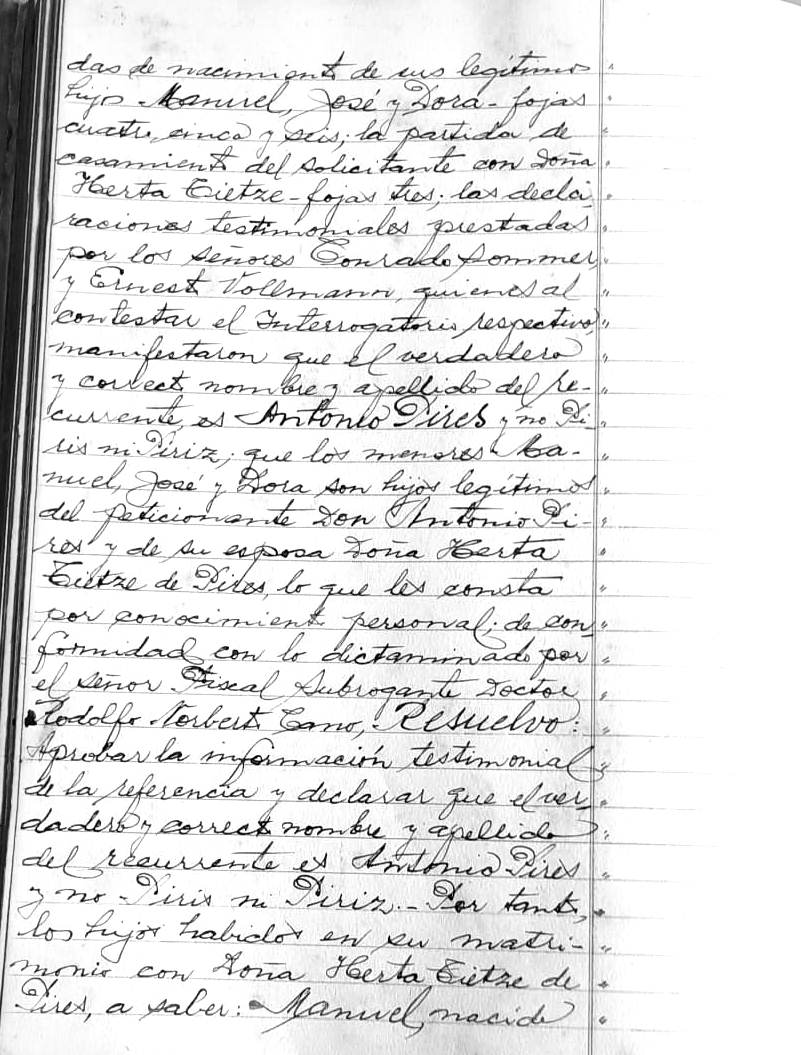 das de nacimiento de sus legítimos
hijos Manuel, José y Dora - fojas
cuatro, cinco y seis; la partida de
casamiento del solicitante con doña
Herta Tietze - fojas tres; las decla
raciones testimoniales prestadas
por los señores Conrado Sommer,
y Ernesto Vollmann, quienes al
contestar el Interrogatorio respectivo,
manifestaron que el verdadero
y correcto nombre y apellido del re-
currente, es Antonio Pires y no Pi-
ris ni Piriz; que los menores Ma-
nuel, José y Dora son hijos legítimos
del peticionante Don Antonio Pi-
res y de su esposa Doña Herta
Tietze de Pires, lo que les consta
por conocimiento personal; de con-
formidad con lo dictaminado por
el señor Fiscal Subrogante Doctor
Rodolfo Norberto Cano, Resuelvo:
Aprobar la información testimonial
de la referencia y declarar que el ver-
dadero y correcto nombre y apellido
del recurrente es Antonio Pires
y no Piris ni Piriz.- Por tanto,
los hijos habidos en su matri-
monio con Doña Herta Tietze de
Pires, a saber: Manuel, nacido